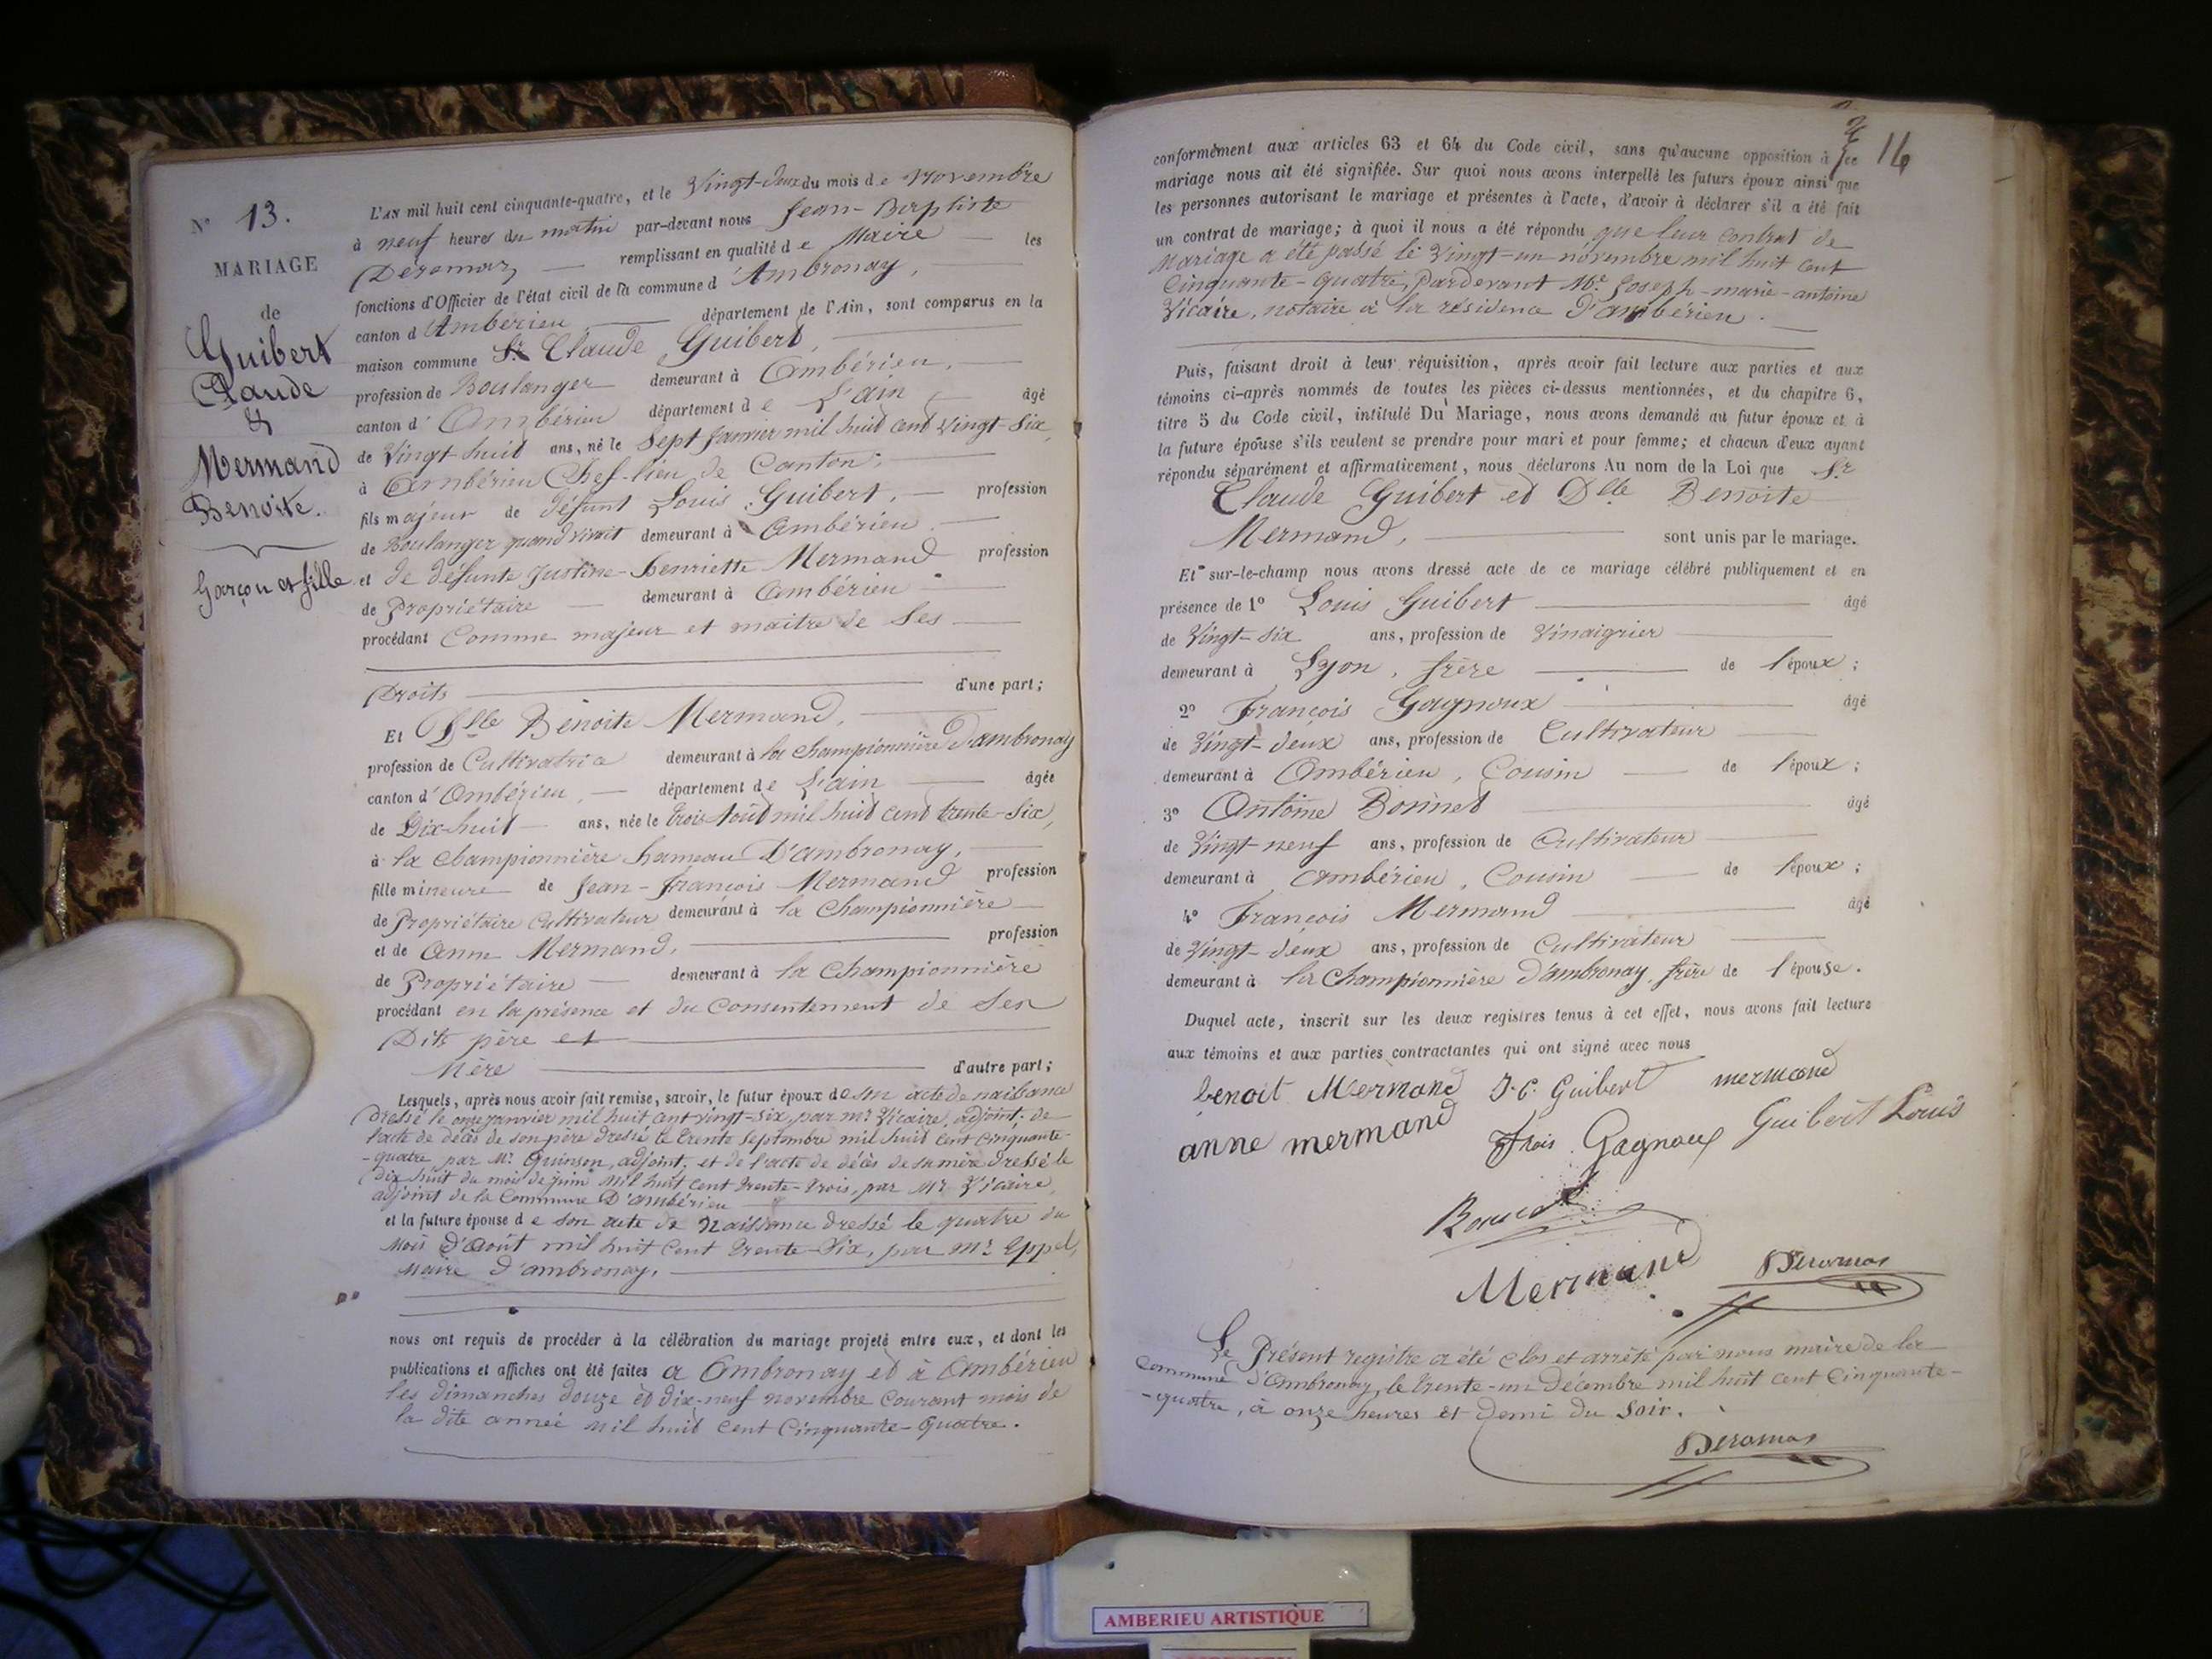 N° 13.
MARIAGE
de
Guibert
Claude
&
Mermand
Benoite.
Garçon et fille
L'AN mil huit cent cinquante-quatre, et le Vingt-deux du mois de novembre
à neuf heures du matin par-devant nous Jean-Baptiste
Déromas, remplissant en qualité de Maire les
fonctions d'Officier de l'état civil de la commune d'Ambronay,
canton d'Ambérieu département de l'Ain, sont comparus en la
maison commune Sr Claude Guibert,
profession de Boulanger demeurant à Ambérieu,
canton d'Ambérieu département de L'ain âgé
de Vingt huit ans, né le Sept Janvier mil huit cent Vingt-Six,
à Ambérieu Chef-lieu de Canton,
fils majeur de défunt Louis Guibert, profession
de Boulanger quand vivait demeurant à Ambérieu
et de défunte Justine-henriette Mermand profession
de Propriétaire demeurant à Ambérieu
procédant Comme majeur et maître de Ses
Droits d'une part;
Et Dlle Benoite Mermand,
profession de Cultivatrice demeurant à la championnière d'ambronay
canton d'Ambérieu, département de L'ain âgée
de Dix-huit ans, née le trois Août mil huit cent trente-Six,
à la championnière hameau D'ambronay,
fille mineure de Jean-françois Mermand profession
de Propriétaire Cultivateur demeurant à la Championnière
et de Anne Mermand, profession
de Propriétaire demeurant à la Championnière
procédant en la présence et du Consentement de Ses
Dits père et
Mère d'autre part;
Lesquels, après nous avoir fait remise, savoir, le futur époux de son acte de naissance
dressé le onze Janvier mil huit cent vingt-Six, par mr Vicaire, adjoint, de
l'acte de décès de son père dressé le trente Septembre mil huit cent Cinquante-
-quatre par Mr Guinson, adjoint, et de l'acte de décès de sa mère dressé le
dix huit du mois de juin mil huit cent trente-trois, par Mr Vicaire,
adjoint de la Commune D'ambérieu
et la future épouse de son acte de Naissance dressé le quatre du
Mois d'Août mil huit Cent trente-Six, par Mr Eppel,
Maire d'ambronay.
nous ont requis de procéder à la célébration du mariage projeté entre eux, et dont les
publications et affiches ont été faites à Ambronay et à Ambérieu
les dimanches douze et dix-neuf novembre Courant mois de
la dite année mil huit Cent Cinquante-Quatre.
16
conformément aux articles 63 et 64 du Code civil, sans qu'aucune opposition à ce
mariage nous ait été signifiée. Sur quoi nous avons interpellé les futurs époux ainsi que
les personnes autorisant le mariage et présentes à l'acte, d'avoir à déclarer s'il a été fait
un contrat de mariage; à quoi il nous a été répondu que leur contrat de
Mariage a été passé le Vingt-un novembre mil huit Cent
Cinquante-quatre, Pardevant Me Joseph-marie-antoine
Vicaire, notaire à la résidence d'ambérieu.
Puis, faisant droit à leur réquisition, après avoir fait lecture aux parties et aux
témoins ci-après nommés de toutes les pièces ci-dessus mentionnées, et du chapitre 6,
titre 5 du Code civil, intitulé Du Mariage, nous avons demandé au futur époux et à
la future épouse s'ils veulent se prendre pour mari et pour femme; et chacun d'eux ayant
répondu séparément et affirmativement, nous déclarons Au nom de la Loi que Sr
Claude Guibert et Dlle Benoite
Mermand, sont unis par le mariage.
Et sur-le-champ nous avons dressé acte de ce mariage célébré publiquement et en
présence de 1° Louis Guibert âgé
de Vingt-six ans, profession de Vinaigrier
demeurant à Lyon, frère de l'époux;
2° François Gagnoux âgé
de Vingt-deux ans, profession de Cultivateur
demeurant à Ambérieu, Cousin de l'époux;
3° Antoine Bonnet âgé
de Vingt neuf ans, profession de Cultivateur
demeurant à Ambérieu, Cousin de l'époux;
4° François Mermand âgé
de Vingt-deux ans, profession de Cultivateur
demeurant à la Championnière d'ambronay, frère de l'épouse.
Duquel acte, inscrit sur les deux registres tenus à cet effet, nous avons fait lecture
aux témoins et aux parties contractantes qui ont signé avec nous
benoit Mermand J. C. Guibert mermand
anne mermand Fçois Gagnoux Guibert Louis
Bonnet
Mermand Deromas
Le Présent registre a été clos et arrêté par nous maire de la
Commune d'Ambronay, le trente-un Décembre mil huit cent Cinquante-
-quatre, à onze heures et demi du Soir.
Deromas
AMBERIEU ARTISTIQUE